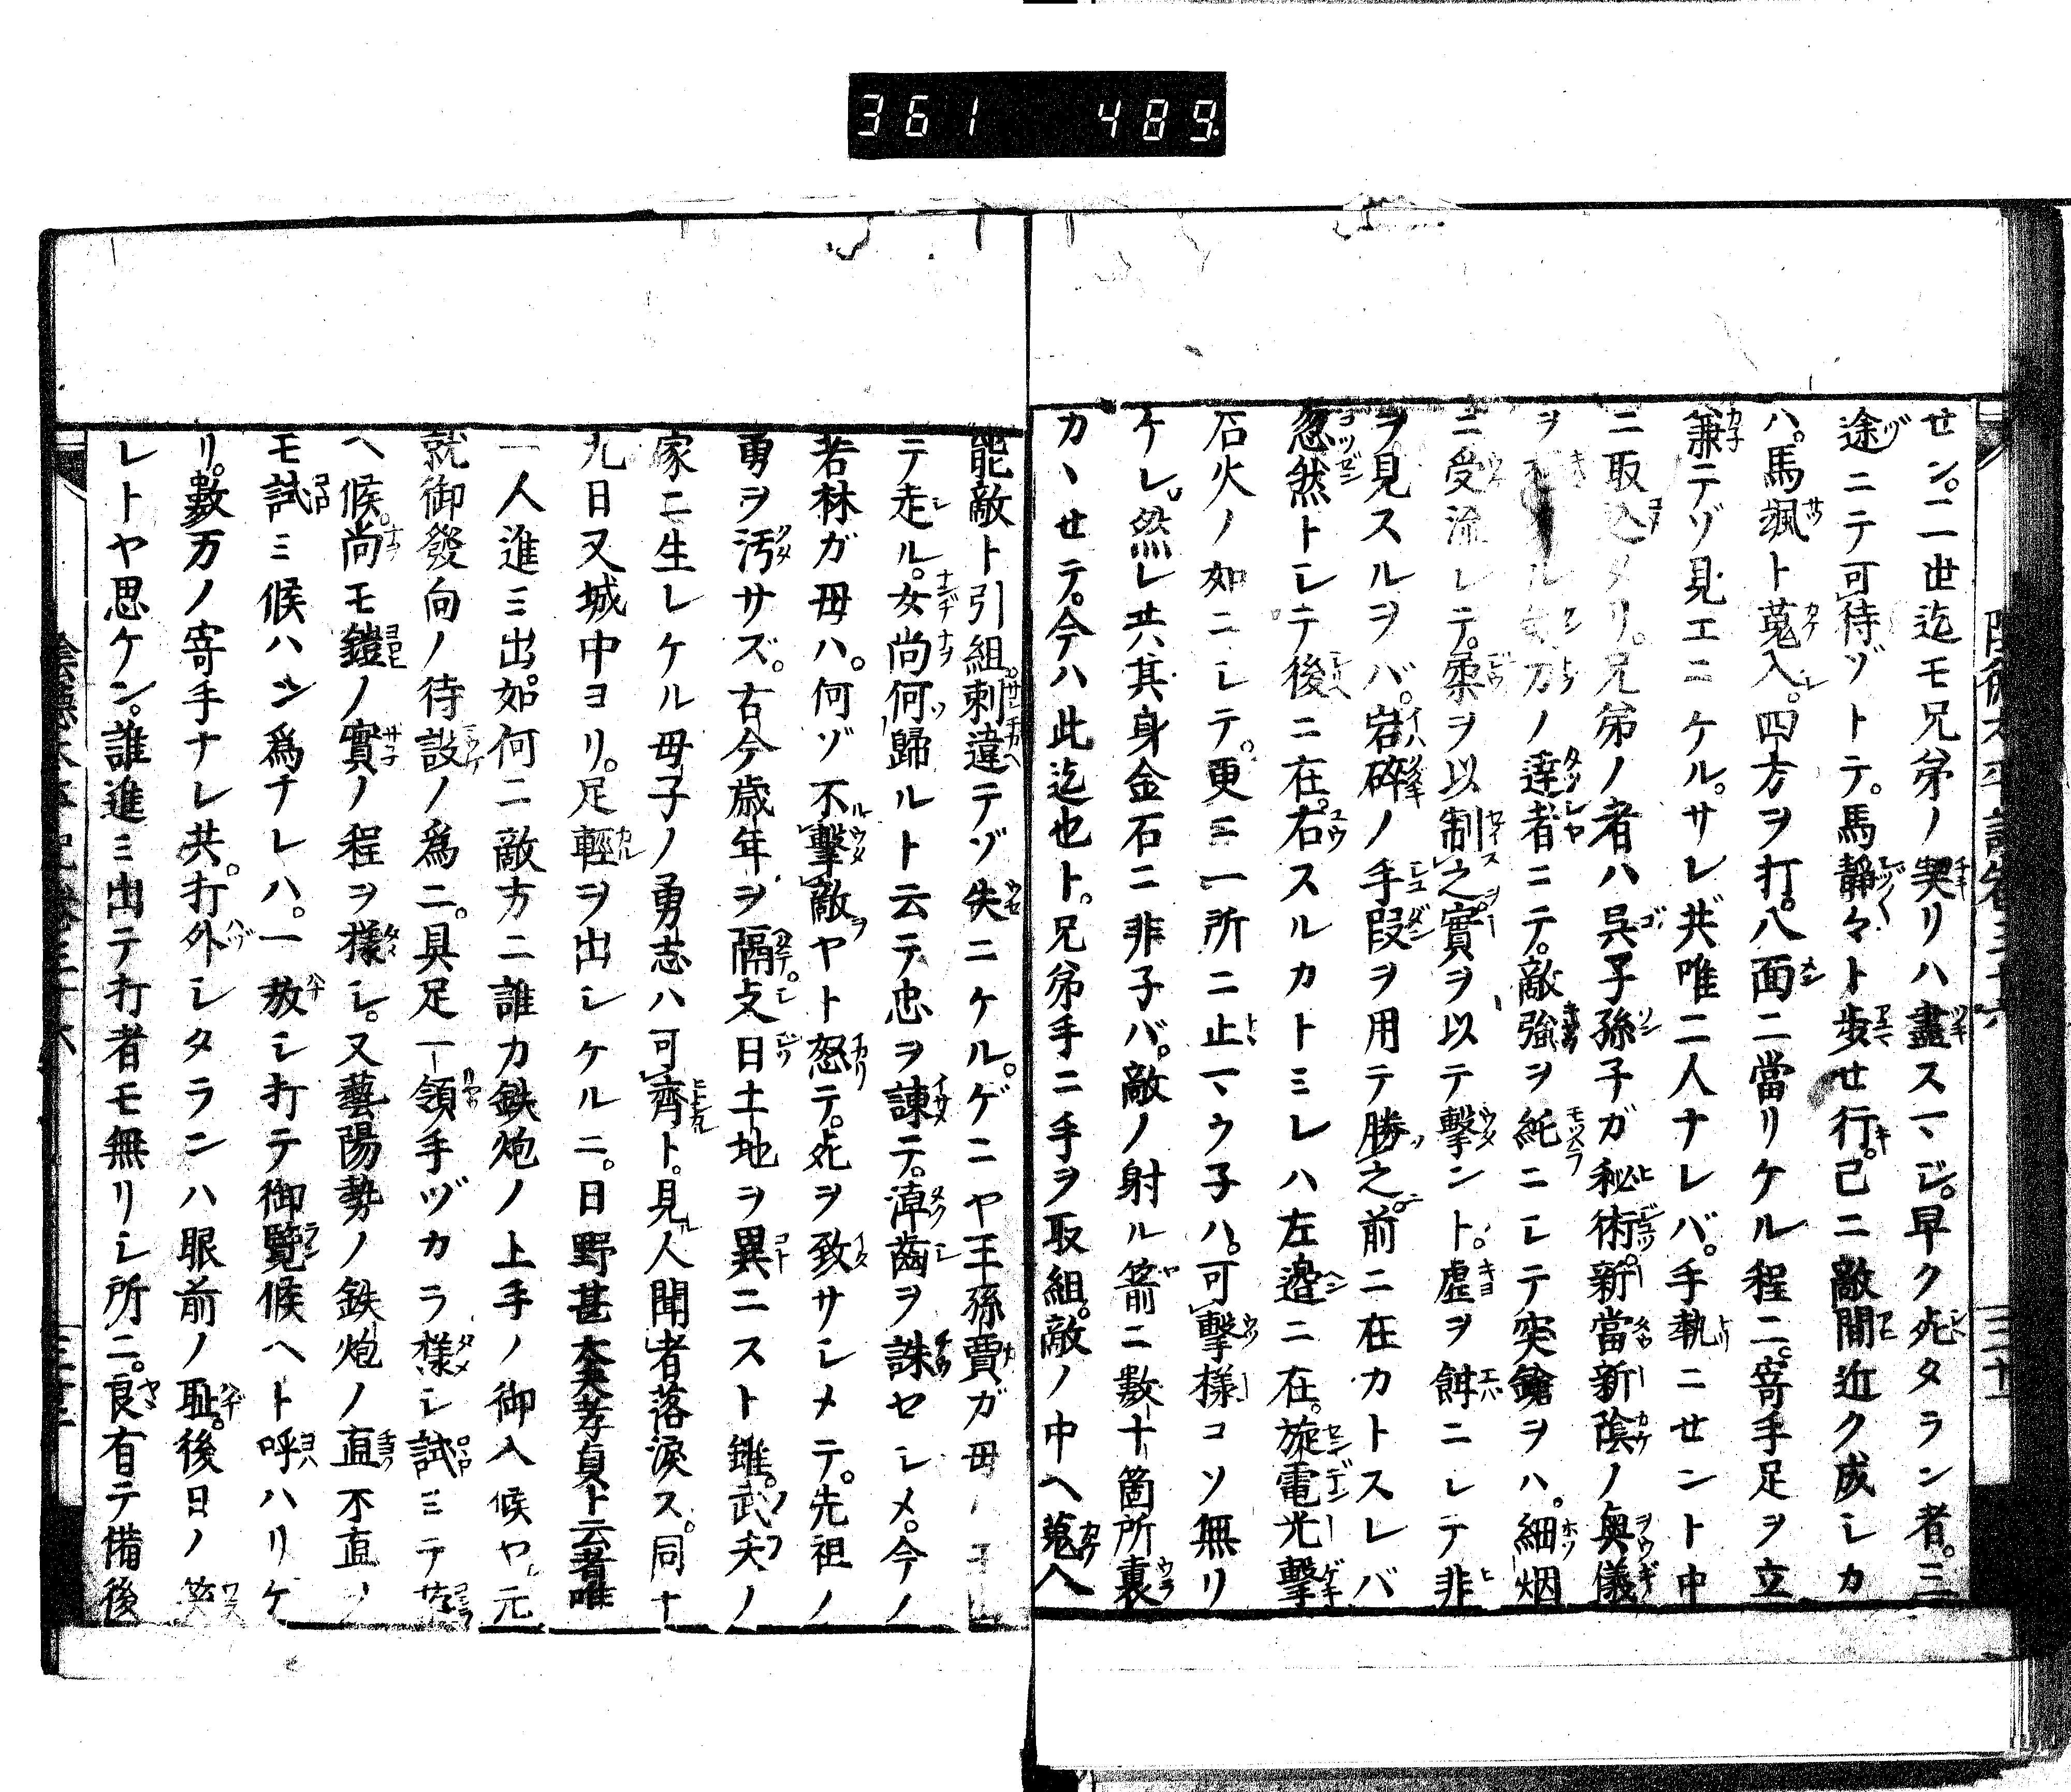 361 489
セン。二世迄モ兄弟ノ契リハ盡スマジ。早ク死タラン者。三
途ニテ可待ゾトテ。馬靜々ト歩セ行。己ニ敵間近ク成シカ
ハ。馬颯ト蒐入。四方ヲ打。八面ニ當リケル程ニ。寄手足ヲ立
兼テゾ見エニケル。サレ共唯二人ナレバ。手執ニセント中
ニ取込メリ。兄弟ノ者ハ呉子孫子ガ秘術。新當新陰ノ奥儀
ヲ ル 刀ノ達者ニテ。敵強ヲ純ニシテ突鎗ヲハ。細烟
ニ受流レテ。柔ヲ以制之實ヲ以テ撃ント。虚ヲ餌ニレテ非
ヲ見スルヲバ。岩碎ノ手段ヲ用テ勝之。前ニ在カトスレバ
忽然トレテ後ニ在。右スルカトミレハ左邊ニ在。旋電光撃
石火ノ如ニレテ。更ニ一所ニ止マウ子ハ。可撃様コソ無リ
ケレ。然レ共其身金石ニ非子バ。敵ノ射ル箭ニ数十箇所裏
カヽセテ。今ハ此迄也ト。兄弟手ニ手ヲ取組。敵ノ中ヘ蒐入
能敵ト引組。刺違テゾ失ニケル。ゲニヤ王孫賈ガ母ノ子
テ走ル。女尚何歸ルト云テ忠ヲ諫テ。淖齒ヲ誅セシメ。今ノ
若林ガ母ハ。何ゾ不撃敵ヤト怒テ。死ヲ致サシメテ。先祖ノ
勇ヲ汚サズ。古今歳年ヲ隔支日土地ヲ異ニスト雖。武夫ノ
家ニ生レケル母子ノ勇志ハ可齊ト。見人聞者落涙ス。同十
九日又城中ヨリ。足輕ヲ出シケルニ。日野甚太夫孝貞ト云者唯
一人進ミ出。如何ニ敵方ニ誰カ鉄炮ノ上手ノ御入候ヤ。元
就御發向ノ待設ノ爲ニ。具足一領手ヅカラ様シ試ミテ
ヘ候。尚モ鎧ノ實ノ程ヲ様シ。又藝陽勢ノ鉄炮ノ直不直ノ
モ試ミ候ハン爲ナレハ。一放シ打テ御覽候ヘト呼ハリケ
リ。數万ノ寄手ナレ共。打外シタランハ眼前ノ耻。後日ノ笑
レトヤ思ケン。誰進ミ出テ打者モ無リシ所ニ。良有テ備後